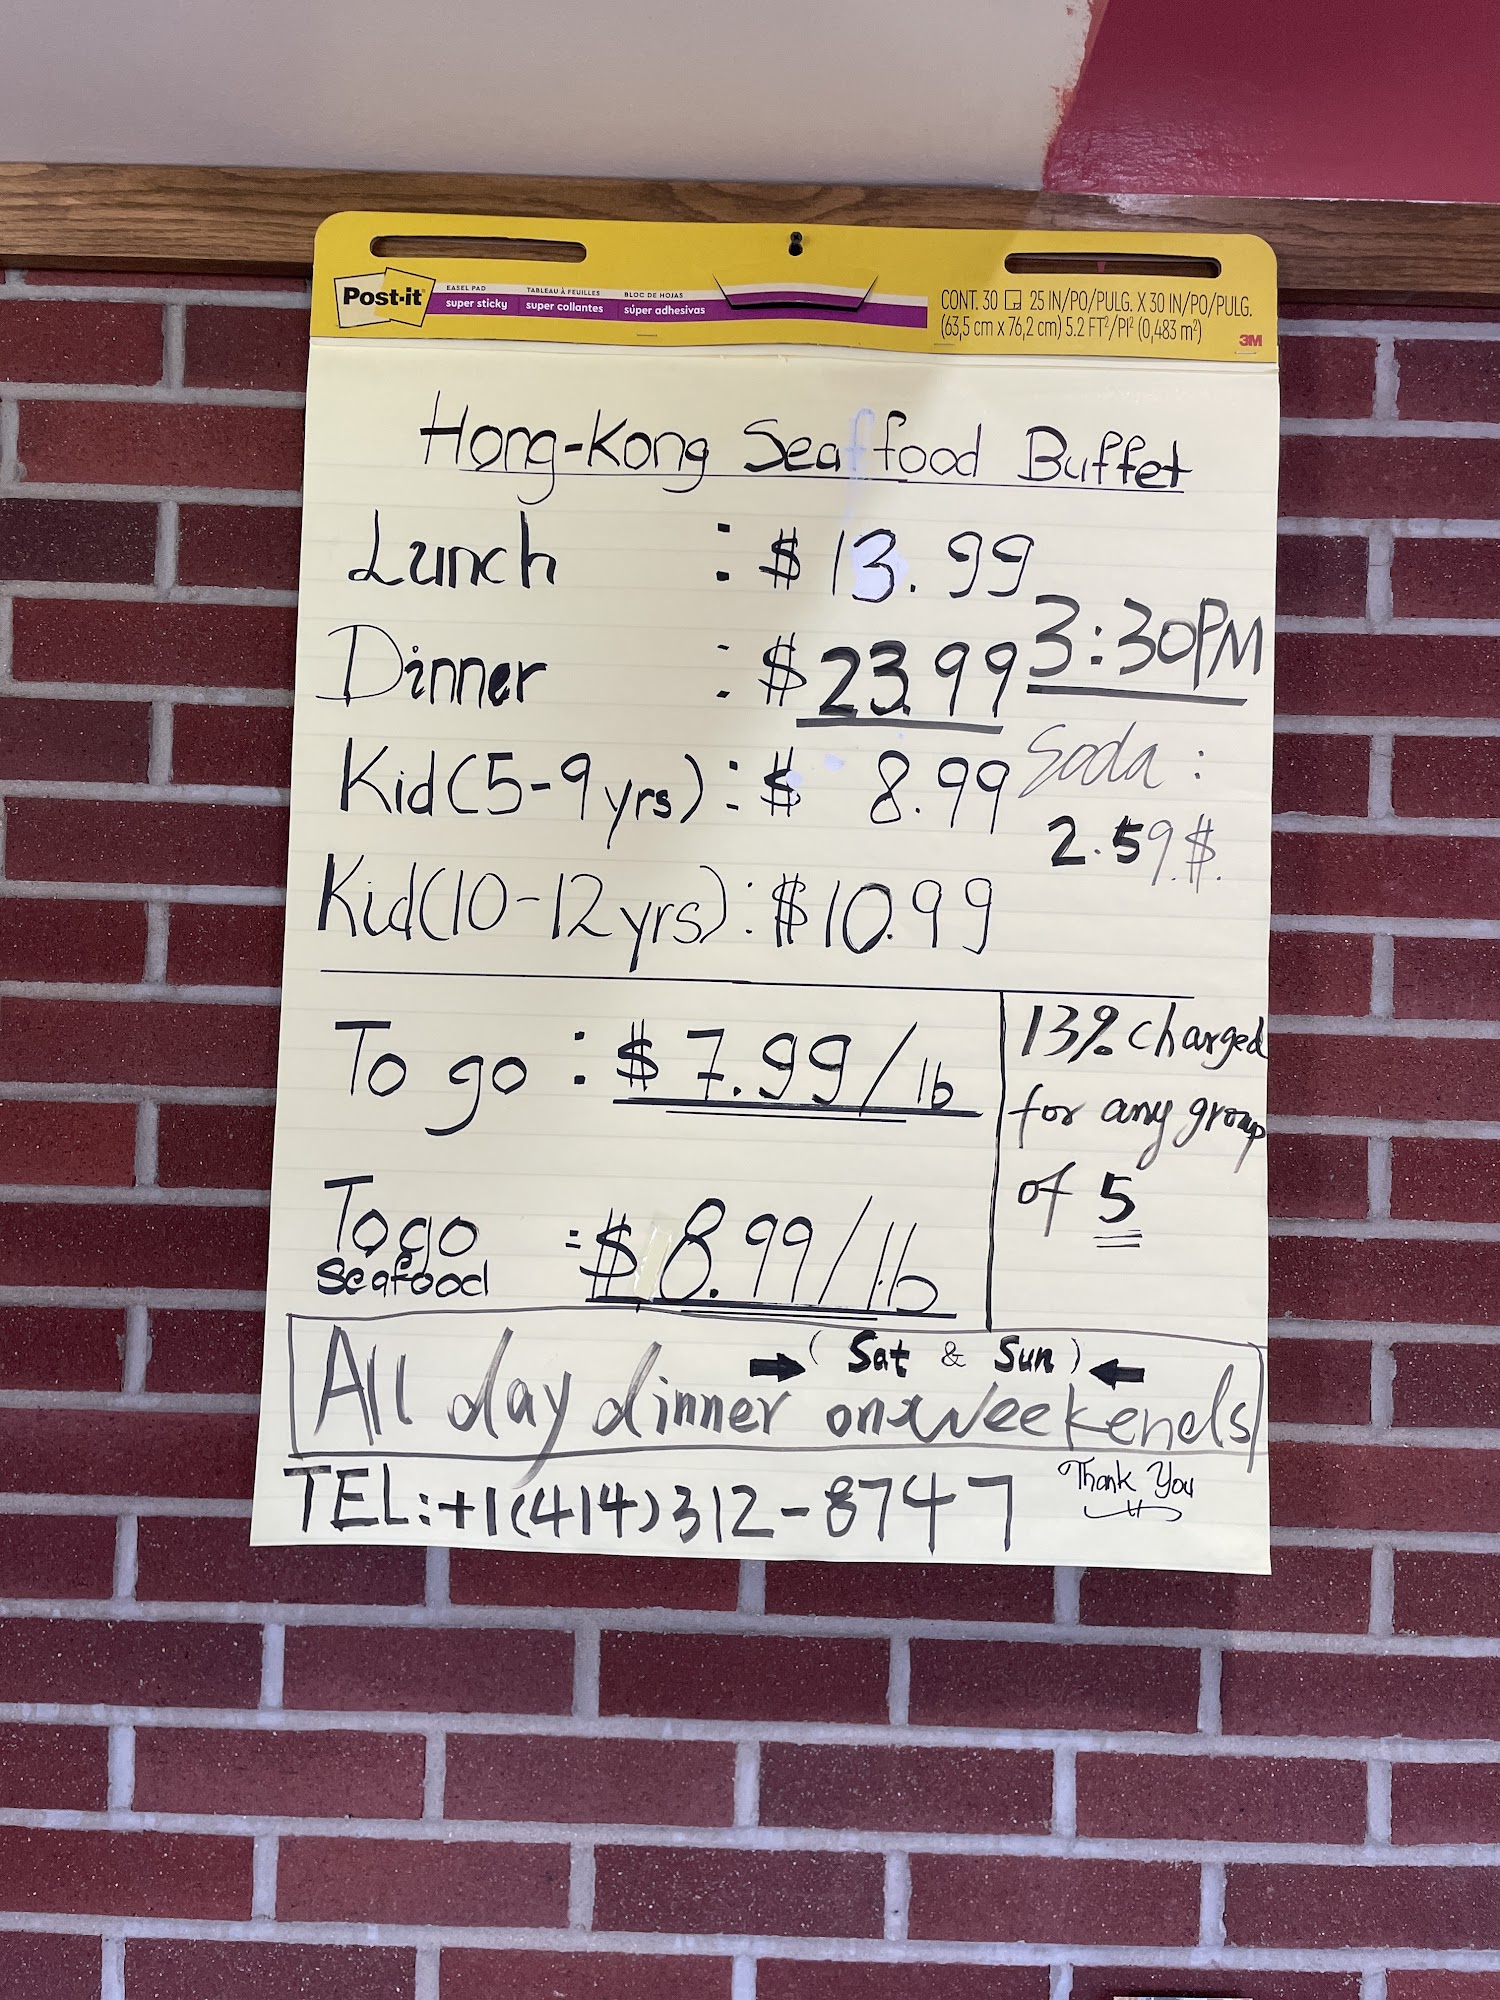 Post-it
EASEL PAD
super sticky
TABLEAU À FEUILLES
super collantes
BLOC DE HOJAS
súper adhesivas
CONT. 30 25 IN/PO/PULG. X 30 IN/PO/PULG.
(63,5 cm x 76,2 cm) 5.2 FT²/PI² (0,483 m²)
3M
Hong-Kong Seafood Buffet
Lunch : $ 13.99
Dinner : $ 23.99 3:30PM
Kid(5-9yrs) : $ 8.99
Soda :
2.59.$.
Kid(10-12yrs) : $10.99
To go : $ 7.99/lb
13% charged
for any group
of 5
Togo
seafood := $ 8.99/lb
(Sat & Sun)
All day dinner on weekends
TEL:+1(414)312-8747
Thank You